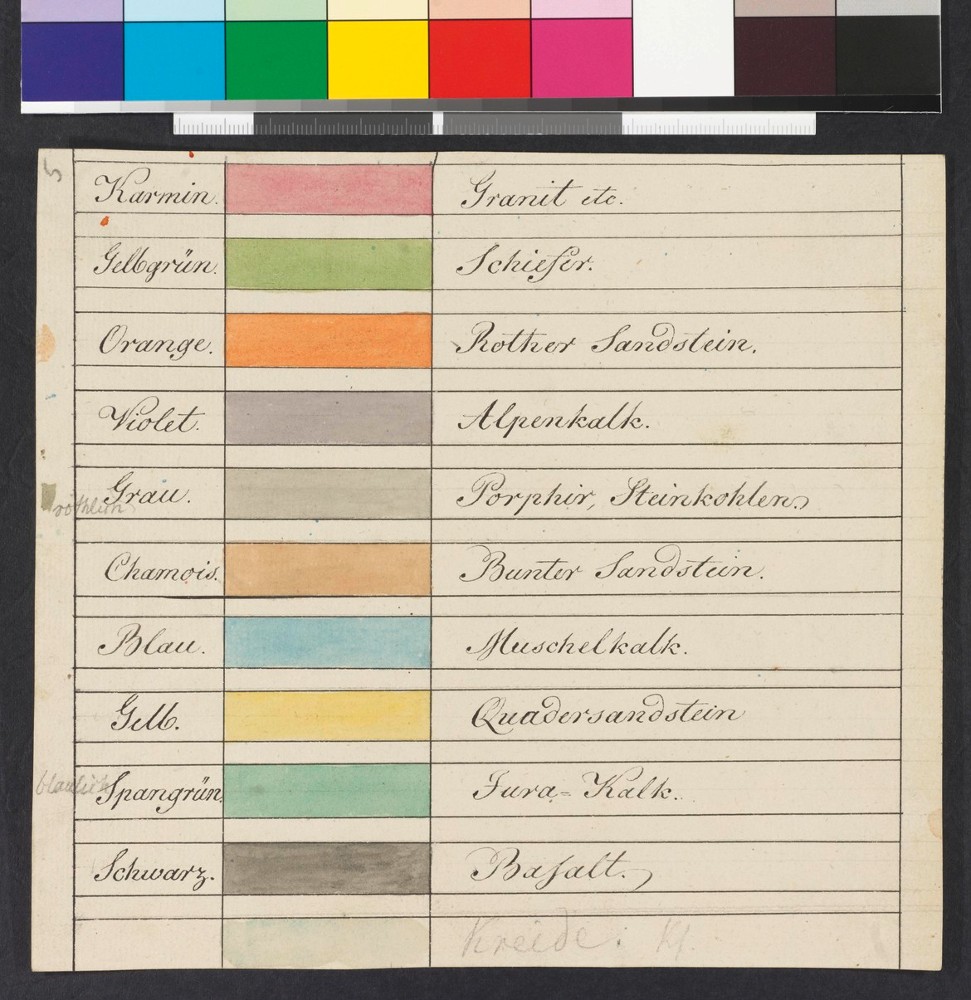 5
Karmin. Granit etc.
Gelbgrün. Schiefer.
Orange. Rother Sandstein.
Violet. Alpenkalk.
Grau. Porphir, Steinkohlen.
röthlich
Chamois. Bunter Sandstein.
Blau. Muschelkalk.
Gelb. Quadersandstein
blaulich Spangrün. Jura= Kalk.
Schwarz. Basalt.
Kreide.